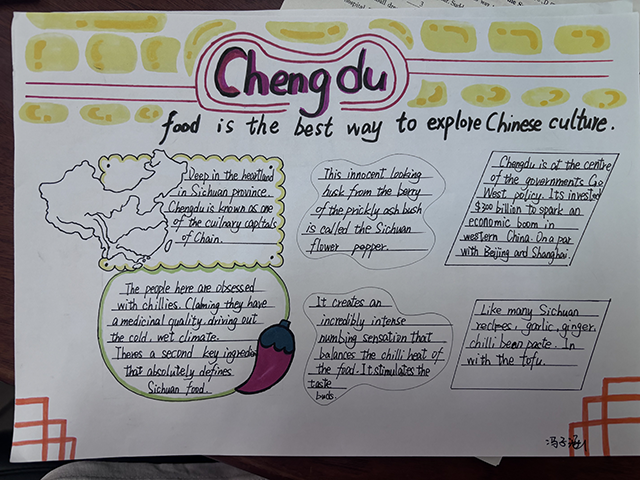 Chengdu
food is the best way to explore Chinese culture.
Deep in the heartland
in Sichuan province.
Chengdu is known as one
of the culinary capitals
of Chain.
This innocent looking
husk from the berry
of the prickly ash bush
is called the Sichuan
flower pepper.
Chengdu is at the centre
of the governments Go
West policy. Its invested
$300 billion to spark an
economic boom in
western China. On a par
with Beijing and Shanghai.
The people here are obsessed
with chillies. Claiming they have
a medicinal quality, driving out
the cold, wet climate.
Theres a second key ingredie
that absolutely defines
Sichuan food.
It creates an
incredibly intense
numbing sensation that
balances the chilli heat of
the food. It stimulates the
taste
buds.
Like many Sichuan
recipes, garlic, ginger,
chilli bean paste. In
with the tofu.
冯子涵